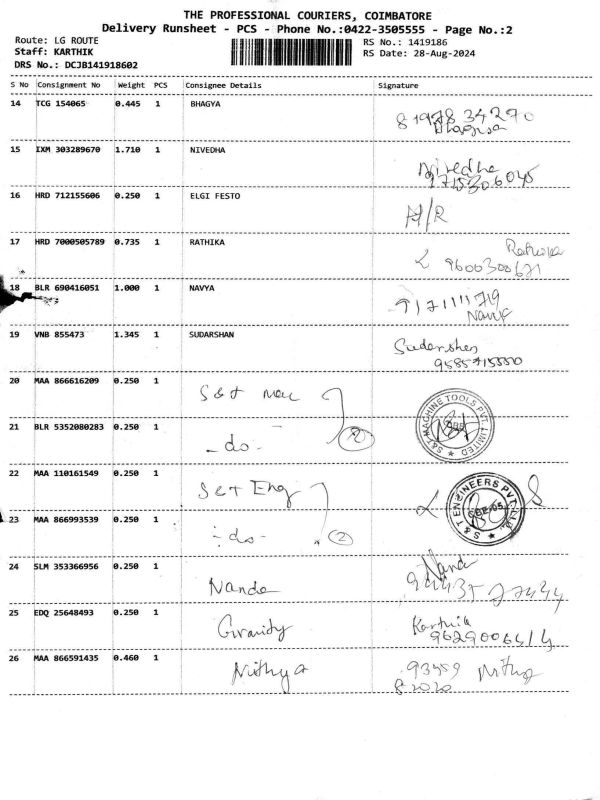 THE PROFESSIONAL COURIERS, COIMBATORE
Delivery Runsheet - PCS - Phone No.:0422-3505555 - Page No.:2
Route: LG ROUTE
Staff: KARTHIK
DRS No.: DCJB141918602
RS No.: 1419186
RS Date: 28-Aug-2024
S No Consignment No Weight PCS Consignee Details Signature
14 TCG 154065 0.445 1 BHAGYA
8197834270
Bhagya
15 IXM 303289670 1.710 1 NIVEDHA
Nivedha
9715306045
16 HRD 712155606 0.250 1 ELGI FESTO
A/R
17 HRD 7000505789 0.735 1 RATHIKA
Rathika
9600300671
18 BLR 690416051 1.000 1 NAVYA
19 VNB 855473 1.345 1 SUDARSHAN
Sudarshan
20 MAA 866616209 0.250 1 S&T Mac
S&T MACHINE TOOLS PVT. LIMITED
CBE
21 BLR 5352080283 0.250 1 -do- 2
22 MAA 110161549 0.250 1 S&T Eng
S & T ENGINEERS PVT. LTD.
CBE-05
23 MAA 866993539 0.250 1 -do- 2
24 SLM 353366956 0.250 1 Nanda
Nanda
25 EDQ 25648493 0.250 1 Gravity
Karthik
26 MAA 866591435 0.460 1 Nithya
93459 Nithya
82020